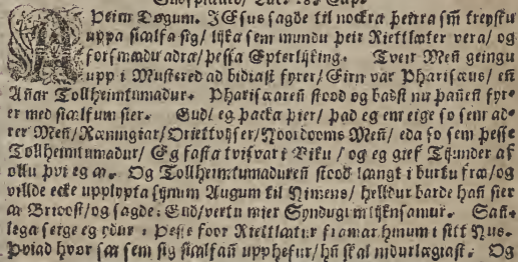 Guðspiallið/ Luc. 18. Cap.
A Þeim Døgum. JEsus sagde til nockra þeirra sm̃ treystu
uppa siaalfa sig/ lijka sem mundu þeir Riettlaater vera/ og
forsmaaðu aðra/ þessa Epterlijking. Tveir Meñ geingu
upp i Mustered ad bidiast fyrer/ Eirn var Phariseus/ eñ
Añar Tollheimtumadur. Phariseareñ stood og badst nu þañeñ fyr-
er med siaalfum sier. Gud! eg þacka þier/ þad eg em eige so sem ad-
rer Meñ/ Ræningiar/ Oriettvijser/ Hoordooms Meñ/ eda so sem þesse
Tollheimtumadur/ Eg fasta tvisvar i Viku/ og eg gief Tijunder af
ollu þvi eg aa. Og Tollheimtumadureñ stood laangt i burtu fraa/ og
villde ecke upplypta sijnum Augum til Himens/ helldur barde hañ sier
aa Brioost/ og sagde: Gud/ vertu mier Syndugum lijknsamur. Sañ-
lega seige eg ydur: Þesse foor Riettlaatur framar hinum i sitt Hus.
Þviad hvor saa sem sig siaalfañ upphefur/ hñ skal nidurlægiast. Og